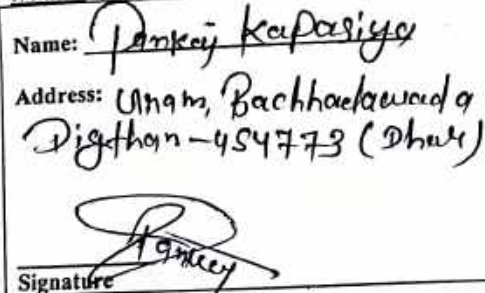 Name: Pankaj Kapasiya
Address: Unam, Bachhadawada
Digthan-454773 (Dhar)
Pankaj
Signature